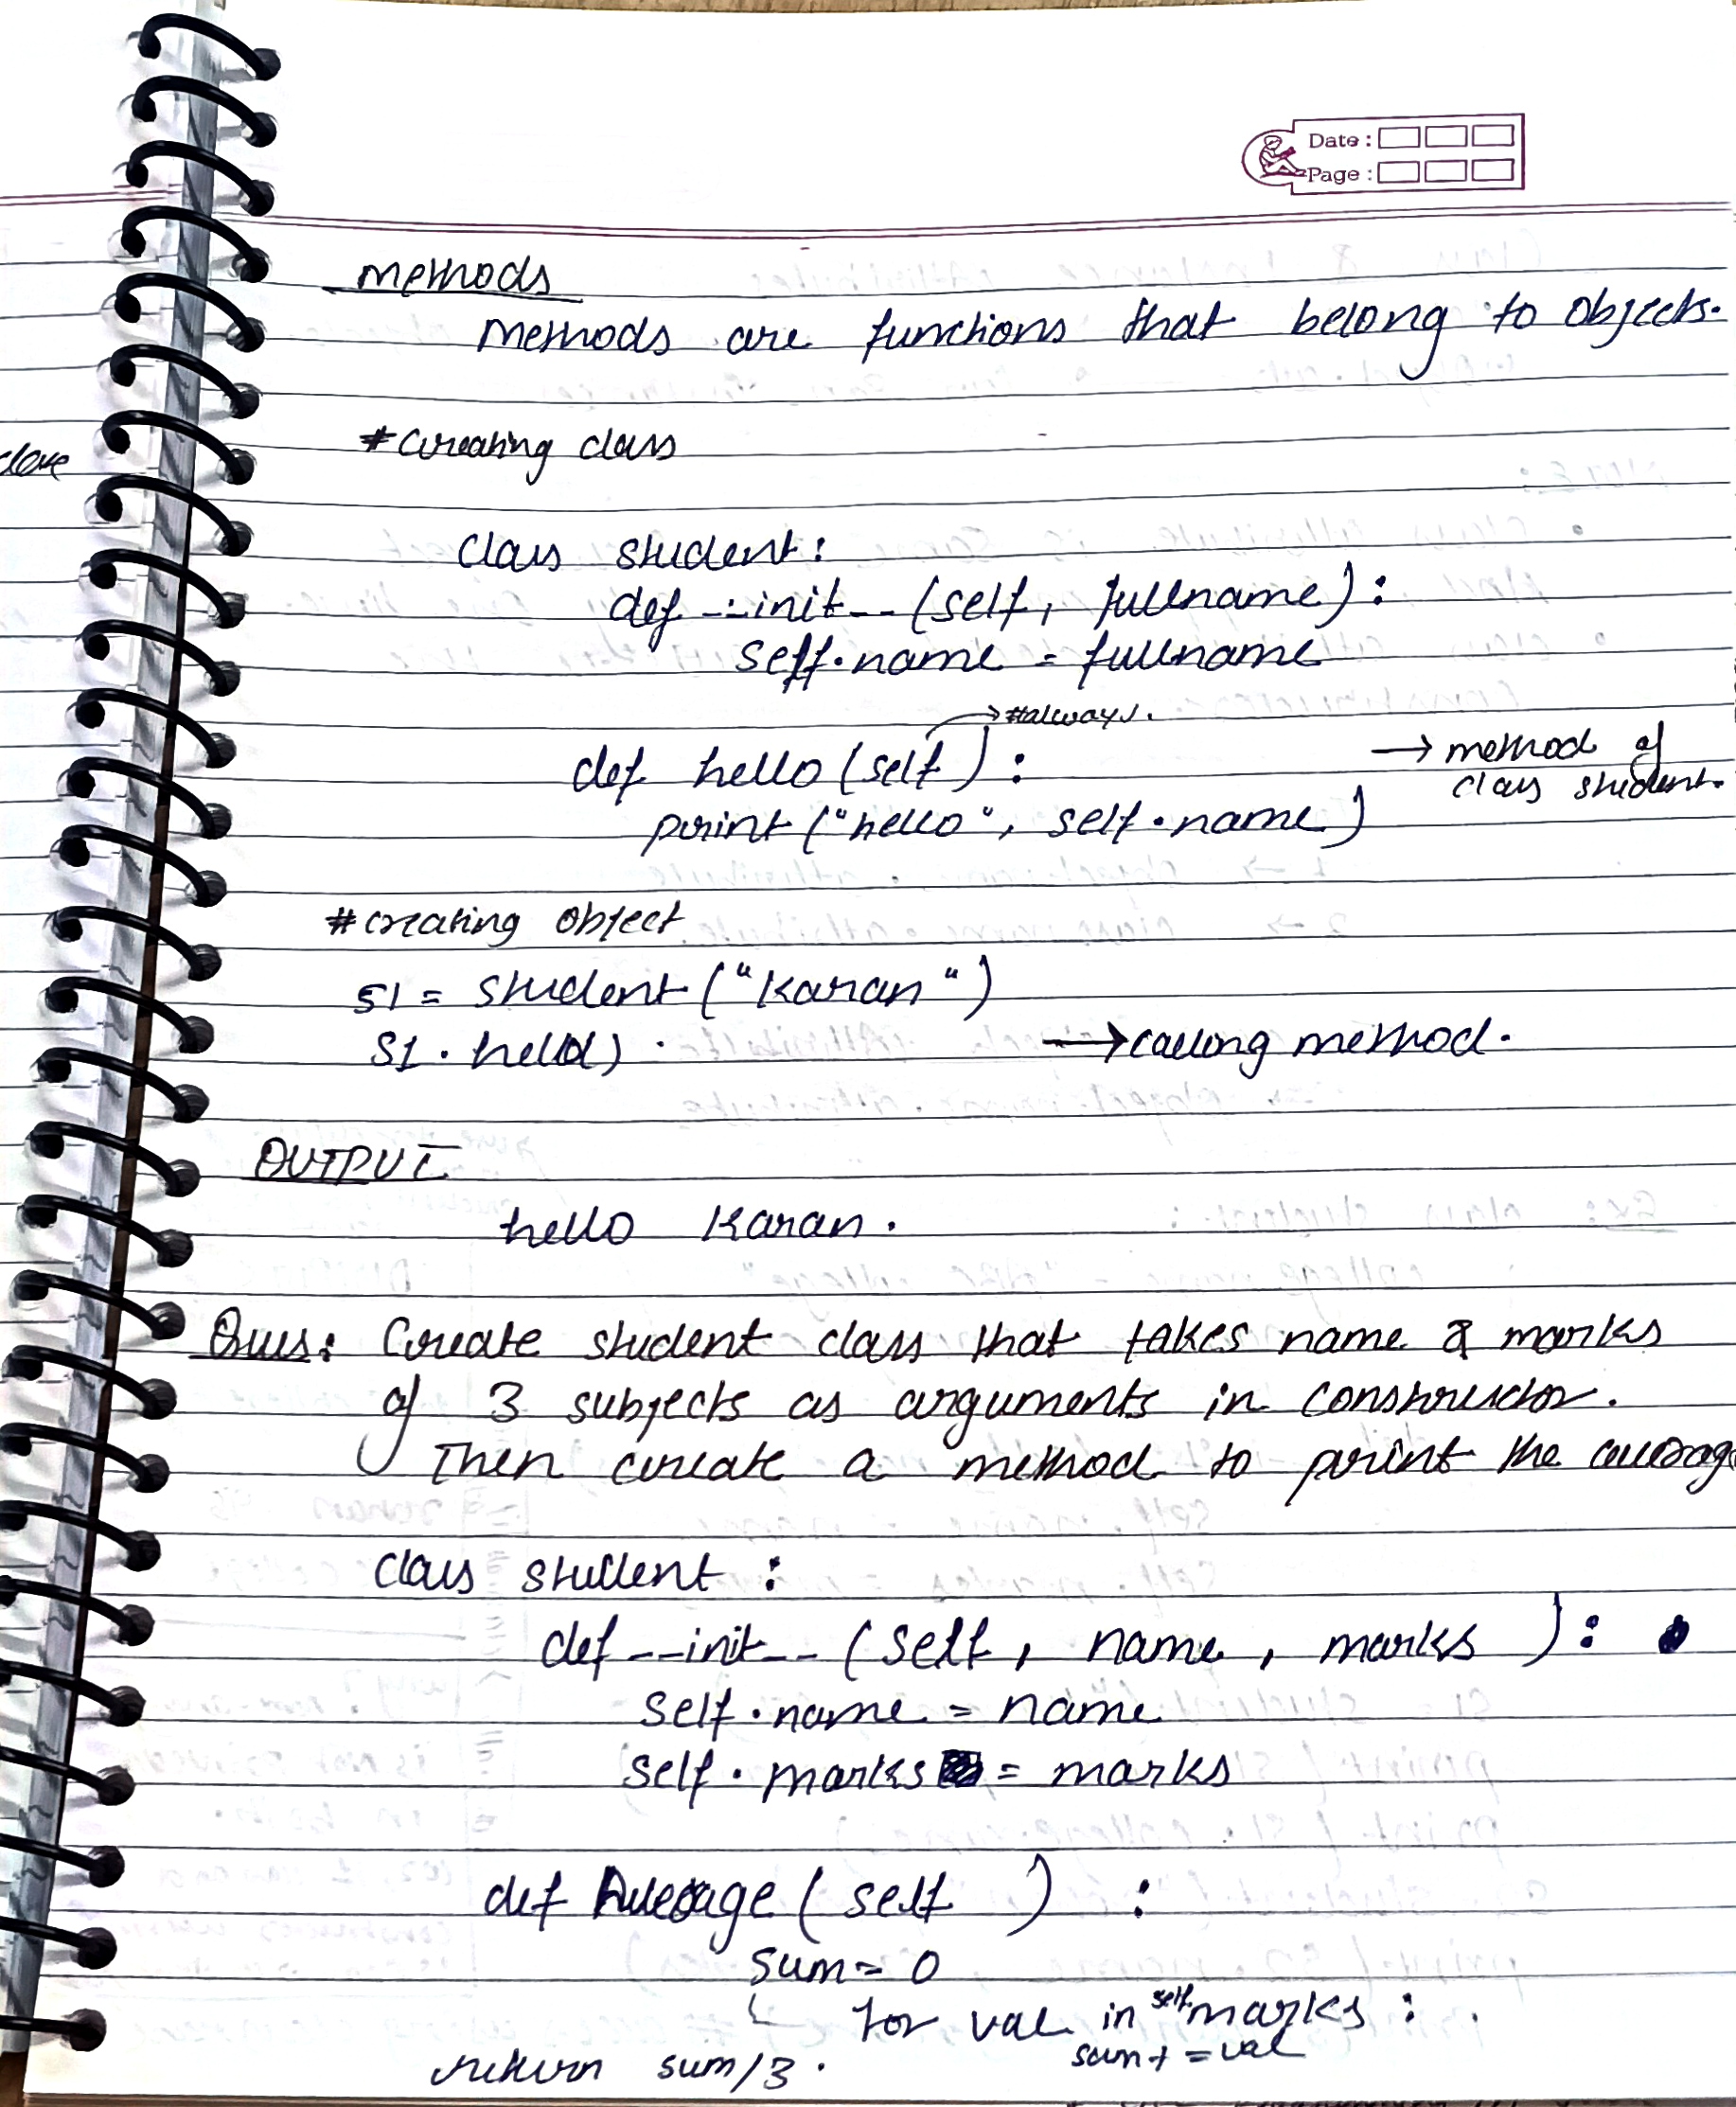 Date :
Page :
Methods
Methods are functions that belong to objects.
dove
#creating class
class student:
def __init__(self, fullname):
self.name = fullname
→ #always.
def hello(self): → method of
class student.
print("hello", self.name)
#creating object
S1 = student("Karan")
S1.hello) → calling method.
OUTPUT
hello Karan.
Ques: Create student class that takes name & marks
of 3 subjects as arguments in constructor.
Then create a method to print the average
class student:
def __init__(self, name, marks):
self.name = name
self.marks = marks
def Average(self):
sum = 0
for val in self.marks:
sum += val
return sum/3.